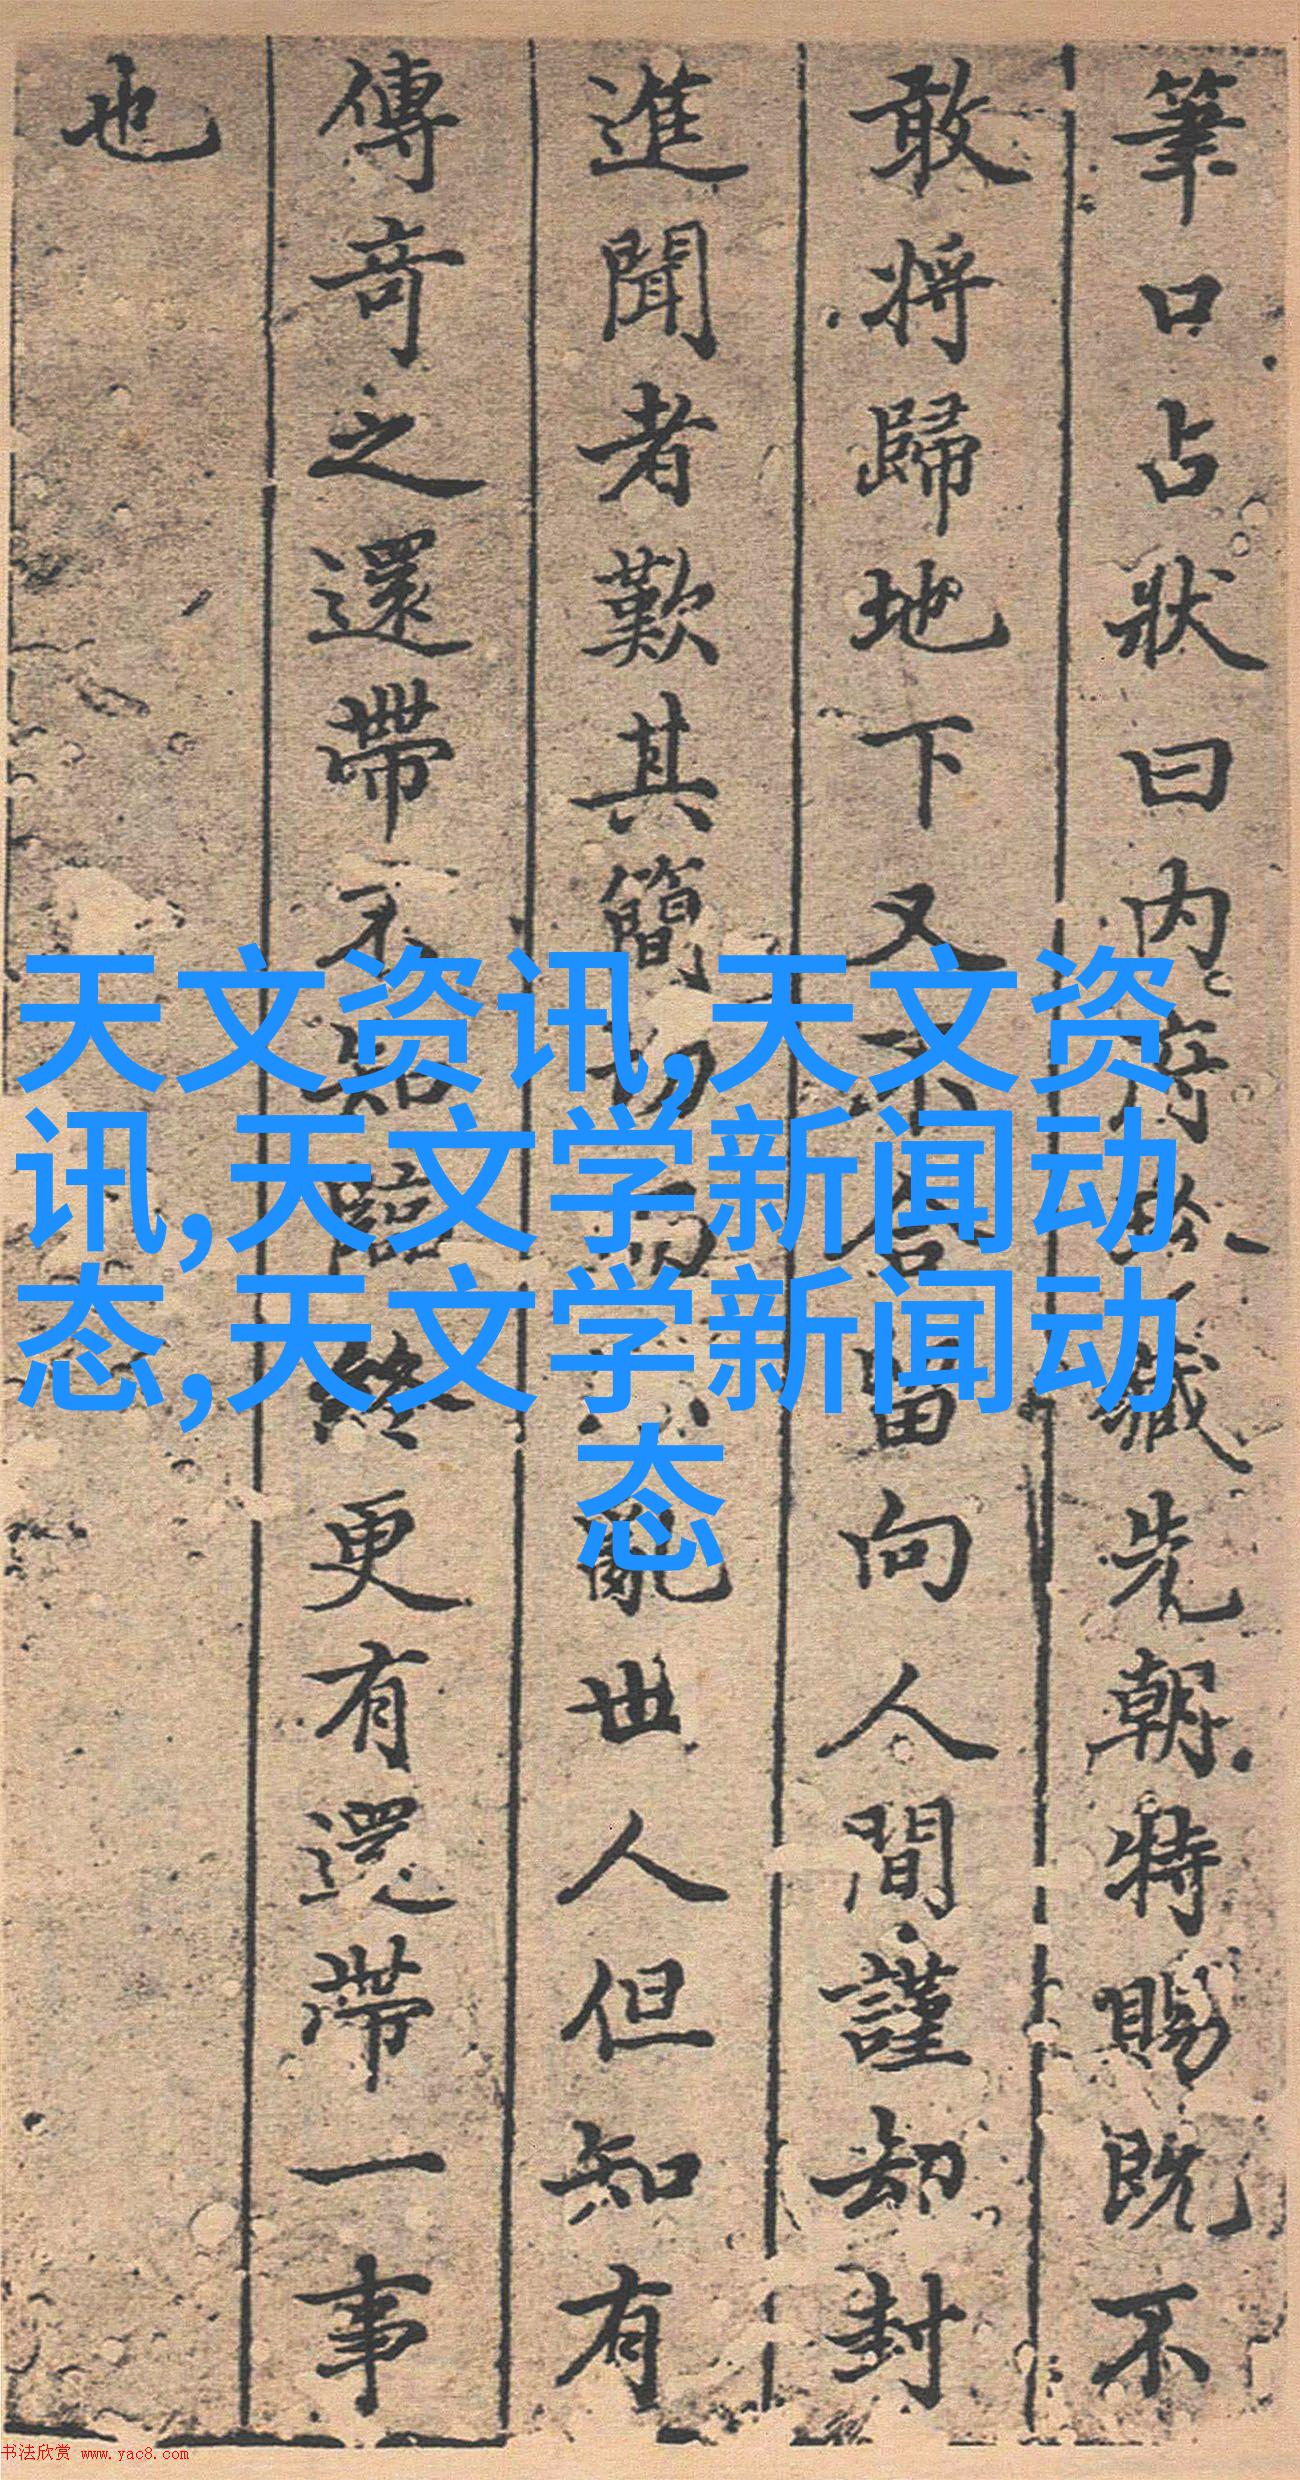 筆口占狀曰内府珍藏先朝特賜既不
敢将歸地下又不合留向人間謹却封
進聞者歎其簡切而不亂世人但知有
傳奇之還帶不知臨終更有還帶一事
也
天文资讯,天文资
讯,天文学新闻动
态,天文学新闻动
态
书法欣赏 www.yac8.com